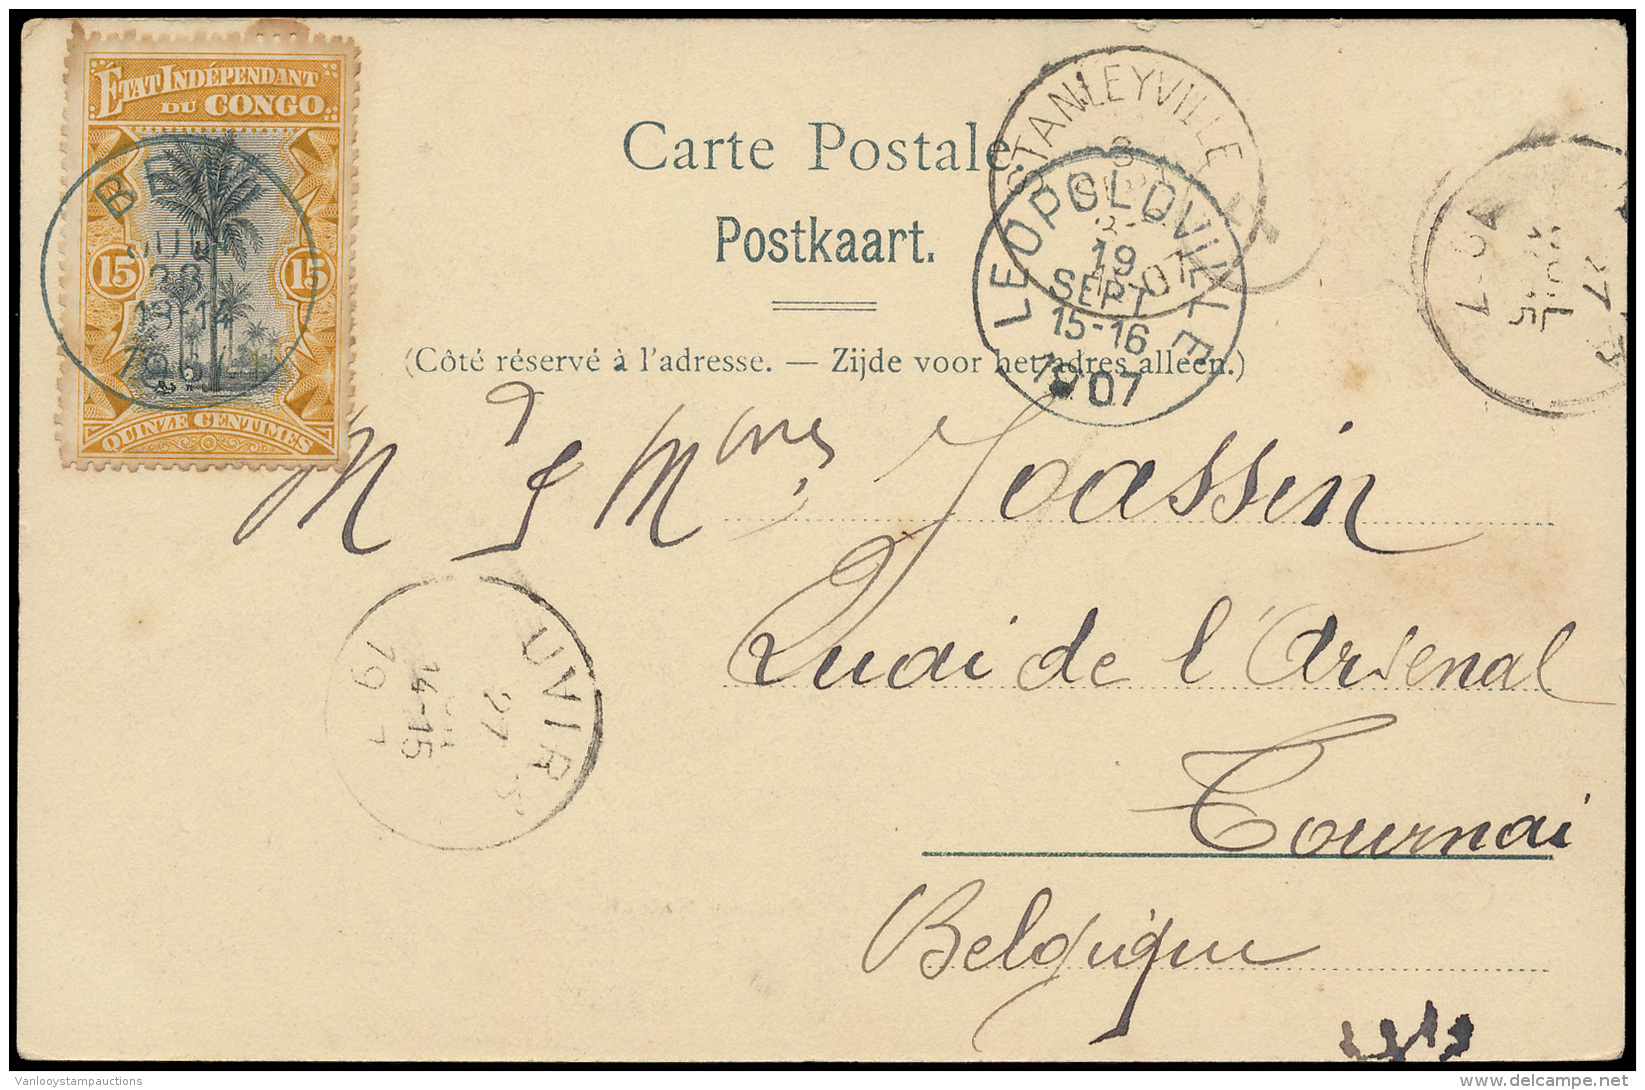 ÉTAT INDÉPENDANT
DU CONGO
15 15
QUINZE CENTIMES
13-14
Carte Postale
Postkaart.
(Côté réservé à l'adresse. — Zijde voor het adres alleen.)
STANLEYVILLE
LEOPOLDVILLE
19
SEPT
15-16
1907
27
M & Mmes Joassin
Quai de l'Arsenal
Tournai
Belgique
UVIR
27
14-15
19 7
Vanlooystampauctions
delcampe.net